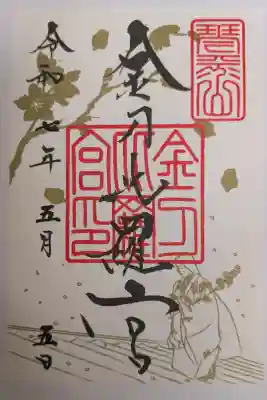 琴平山
金刀比羅宮
金刀
比羅
宮印
令和七年五月五日